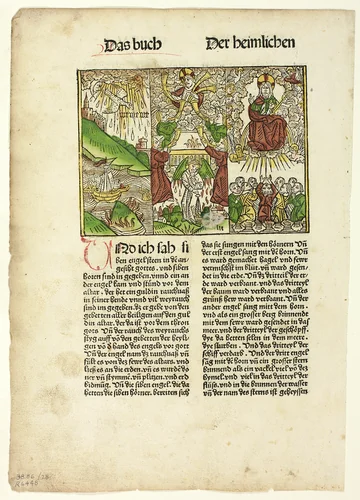 Das buch Der heimlichen
we we we
UNd ich sah si
ben engel steen in dē an-
gesiht gottes. vnd siben
horen sind in gegeben. vnnd ein an
der engel kam vnd stůnd vor dem
altar. der het ein guldin rauchuaß
in seiner hende vnnd vil weyrauch
sind im gegeben. dz er gebe von den
gebetten aller heiligen auff den gul
din altar. der da ist vor dem thron
gots. Vnd der rauch des weyrauchs
steyg auff võ den gebetten der heyli-
gen võ d hand des engels vor gott
Vnd der engel nam dz rauchuaß vñ
fület es von dez fewr des altars. vnd
ließ es an die erden. vñ es wurdē do
ner vñ stymmē. vñ plitzen. vnd erd
bidmūg. Vñ die siben engel. die da
hetten die siben hörner. bereiten sich
das sie sungen mit den hörnern Vñ
der erst engel sang mit dē horn. Vñ
es ward gemachet hagel vnd fewr
vermischt in blůt. vñ ward gesen-
det in die erde. Vñ dz dritteyl der er-
de ward verbrant. vnd das dritteyl
der baum ward verbrant vnd alles
grünß hew ward verbrant. Vnd der
ander engel sang mit dem horn.
vnd als ein grosser berg brinnende
mit dem fewr ward gesendet in daz
meer. vnd der dritteyl der geschöpff.
dye da hetten selen in dem meer.
dye sturben. Vnd das dritteyl der
schiff verdarb. Vnd der drit engel
sāg mit dē horn Vñ ein grosser stern
brinnende als ein vackel viel vō dez
hymel. vnd viel in das dritteyl der
flüße. vnd in die brunnen der wasser
vñ der nam des sterns ist geheyssen